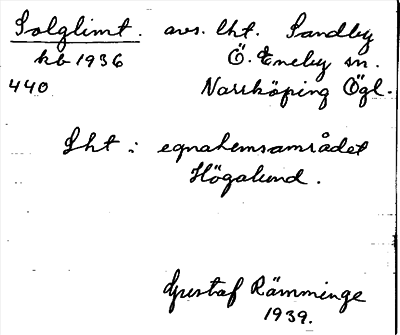 Solglimt. avs. lht. Sandby
kb 1936 Ö. Eneby sn.
440 Norrköping Ögl.
Lht : egnahemsområdet
Högalund.
Gustaf Rämminge
1939.